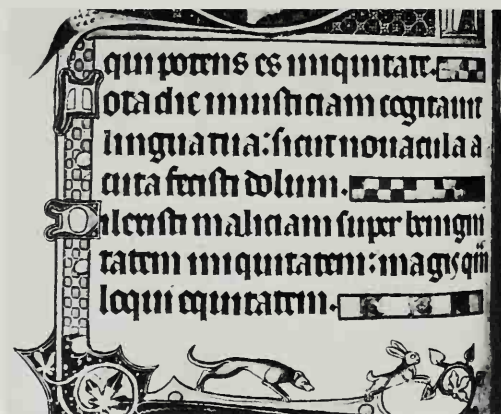 qui potens es iniquitate.
Tota die iniusticiam cogitauit
lingua tua: sicut nouacula a
cuta fecisti dolum.
Dilexisti maliciam super benigni
tatem iniquitatem: magis qm̄
loqui equitatem.